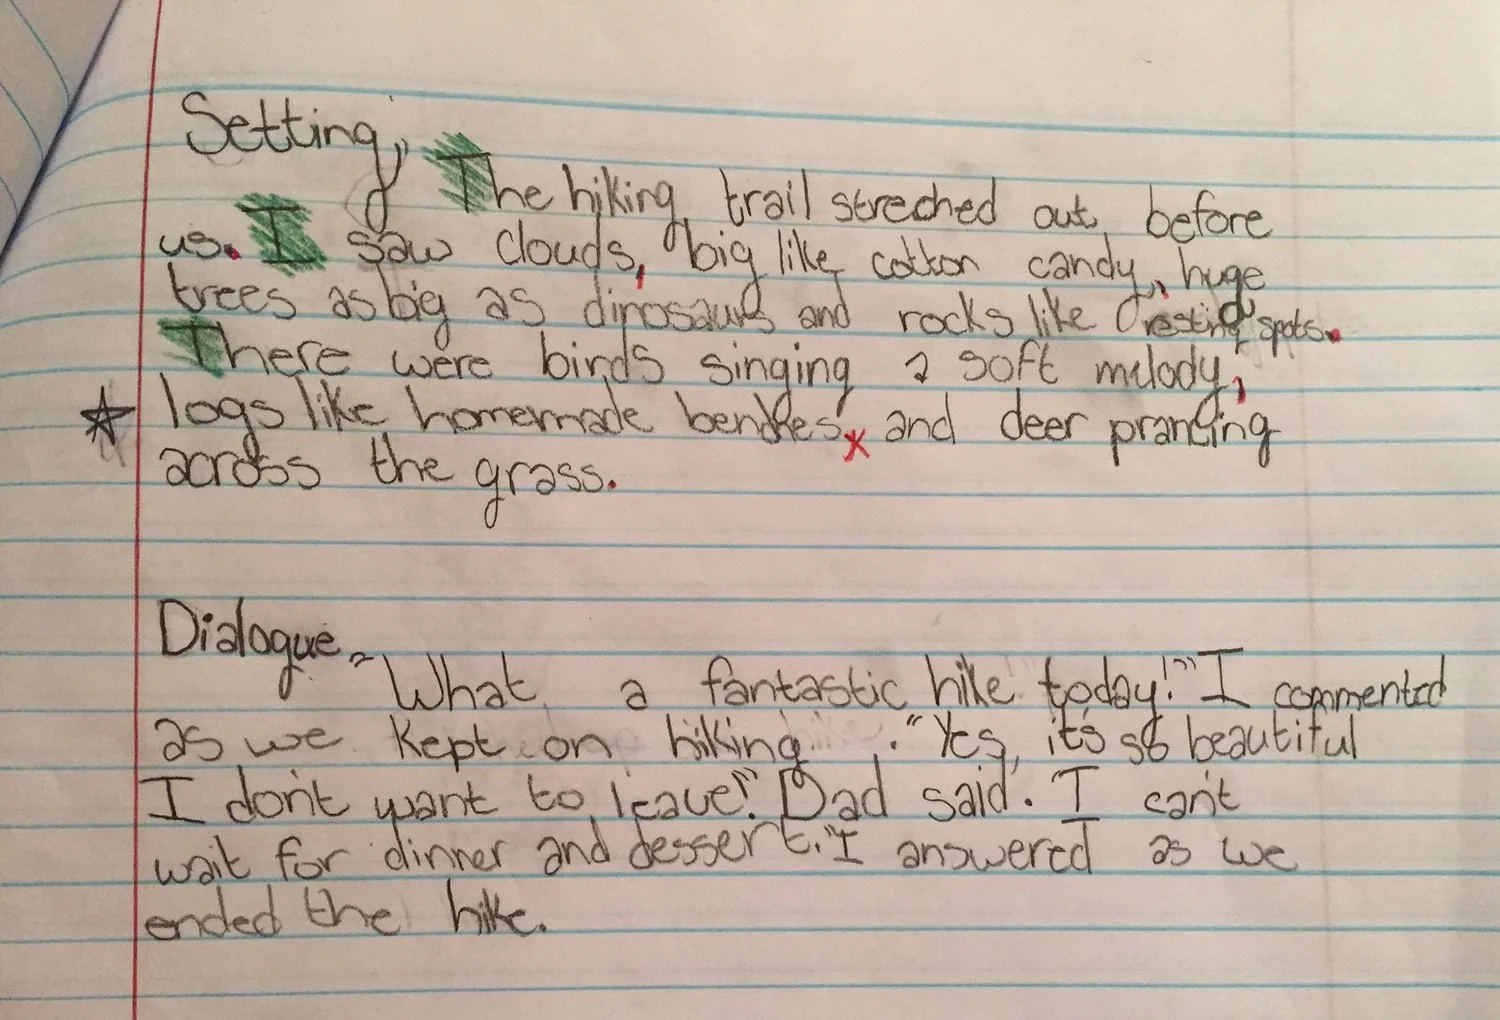 Setting,
The hiking trail streched out before
us. I saw clouds, big like cotton candy, huge
trees as big as dinosaurs and rocks like resting spots.
There were birds singing a soft melody,
logs like homemade benches, and deer prancing
across the grass.
Dialogue
"What a fantastic hike today!" I commented
as we kept on hiking. "Yes, it's so beautiful
I don't want to leave!" Dad said. I can't
wait for dinner and dessert." I answered as we
ended the hike.